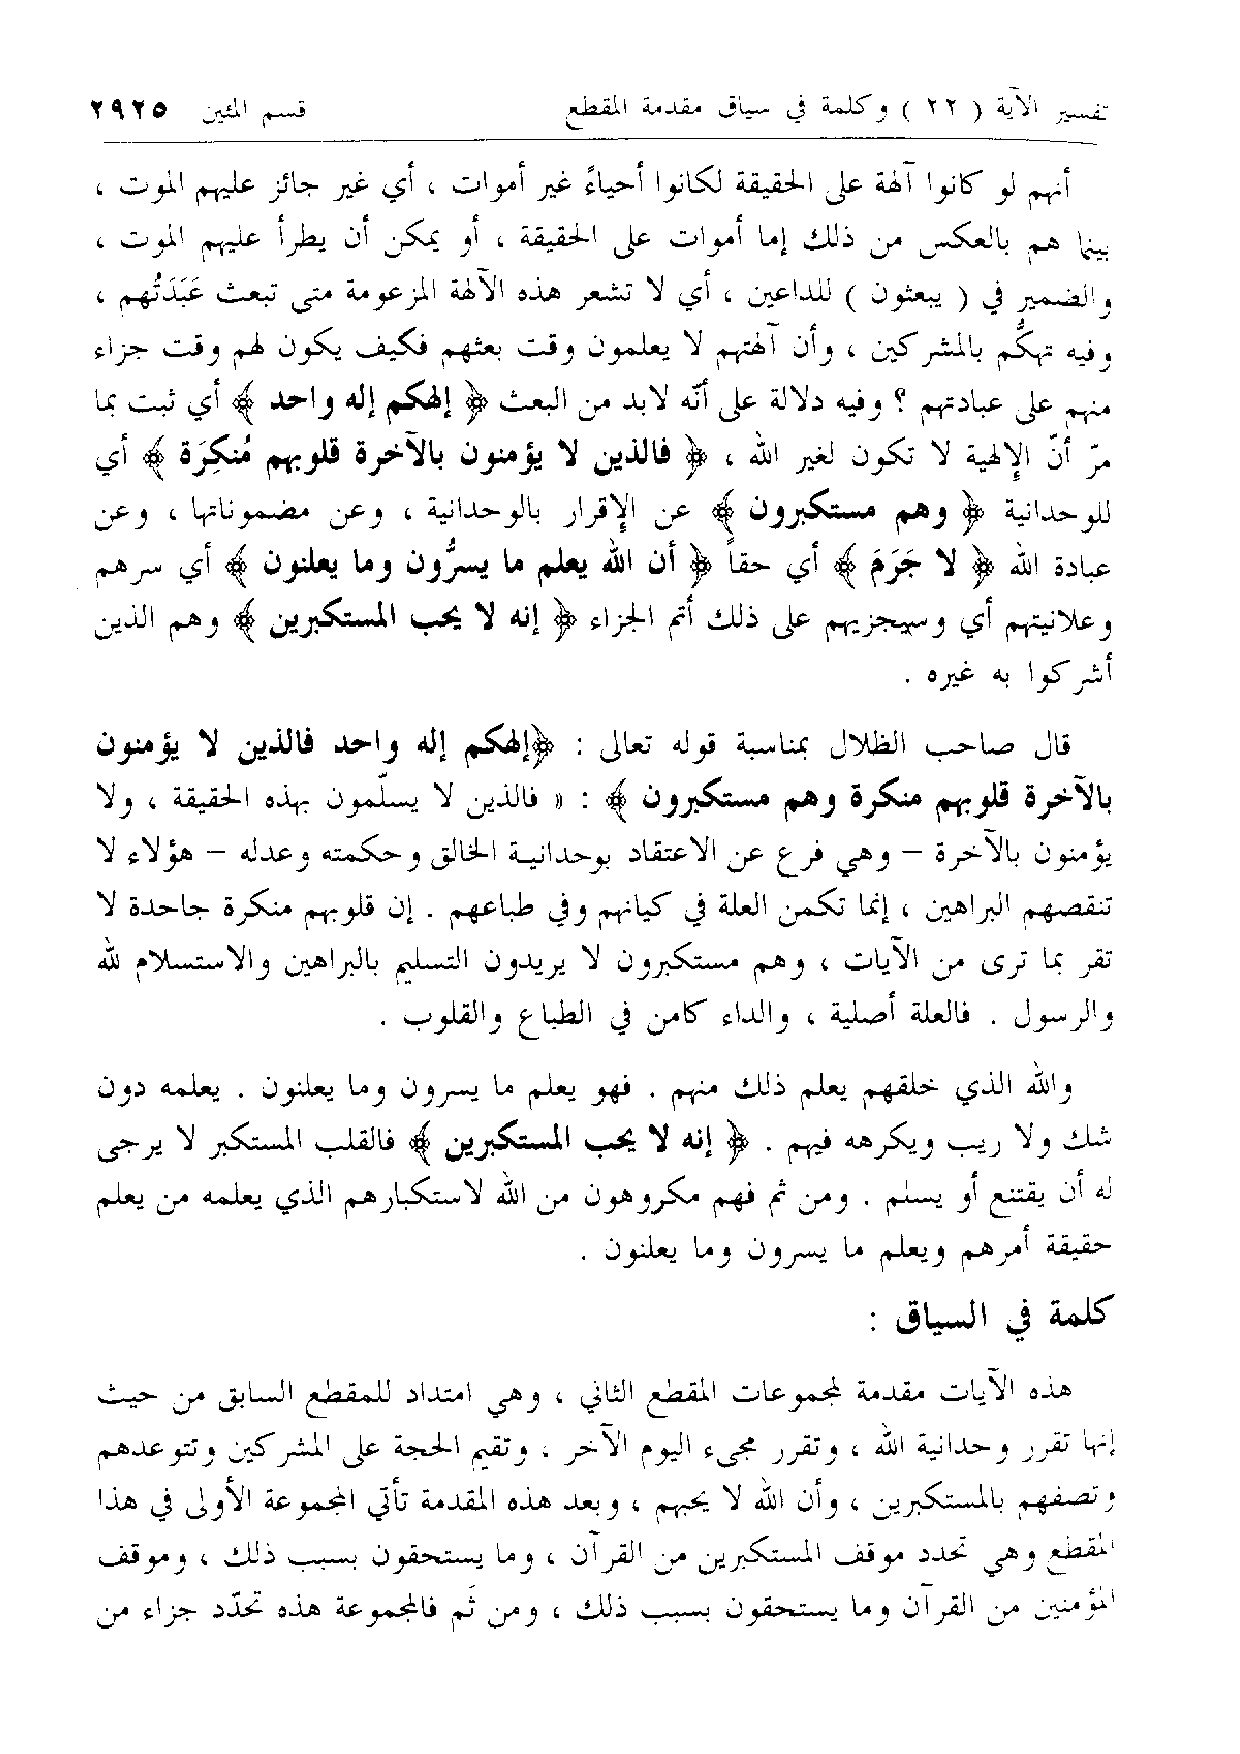 تفسير الآية ( ٢٢ ) وكلمة في سياق مقدمة المقطع قسم المئين ٢٩٢٥
أنهم لو كانوا آلهة على الحقيقة لكانوا أحياءً غير أموات ، أي غير جائز عليهم الموت ،
بينما هم بالعكس من ذلك إما أموات على الحقيقة ، أو يمكن أن يطرأ عليهم الموت ،
والضمير في ( يبعثون ) للداعين ، أي لا تشعر هذه الآلهة المزعومة متى تبعث عَبَدَتُهم ،
وفيه تهكُّم بالمشركين ، وأن آلهتهم لا يعلمون وقت بعثهم فكيف يكون لهم وقت جزاء
منهم على عبادتهم ؟ وفيه دلالة على أنّه لابد من البعث ﴿ إلهكم إله واحد ﴾ أي ثبت بما
مرّ أنّ الإلهية لا تكون لغير الله ، ﴿ فالذين لا يؤمنون بالآخرة قلوبهم مُنكِرَة ﴾ أي
للوحدانية ﴿ وهم مستكبرون ﴾ عن الإقرار بالوحدانية ، وعن مضموناتها ، وعن
عبادة الله ﴿ لا جَرَمَ ﴾ أي حقاً ﴿ أن الله يعلم ما يسرُّون وما يعلنون ﴾ أي سرهم
وعلانيتهم أي وسيجزيهم على ذلك أتم الجزاء ﴿ إنه لا يحب المستكبرين ﴾ وهم الذين
أشركوا به غيره .
قال صاحب الظلال بمناسبة قوله تعالى : ﴿إلهكم إله واحد فالذين لا يؤمنون
بالآخرة قلوبهم منكرة وهم مستكبرون ﴾ : « فالذين لا يسلّمون بهذه الحقيقة ، ولا
يؤمنون بالآخرة – وهي فرع عن الاعتقاد بوحدانية الخالق وحكمته وعدله – هؤلاء لا
تنقصهم البراهين ، إنما تكمن العلة في كيانهم وفي طباعهم . إن قلوبهم منكرة جاحدة لا
تقر بما ترى من الآيات ، وهم مستكبرون لا يريدون التسليم بالبراهين والاستسلام لله
والرسول . فالعلة أصلية ، والداء كامن في الطباع والقلوب .
والله الذي خلقهم يعلم ذلك منهم . فهو يعلم ما يسرون وما يعلنون . يعلمه دون
شك ولا ريب ويكرهه فيهم . ﴿ إنه لا يحب المستكبرين ﴾ فالقلب المستكبر لا يرجى
له أن يقتنع أو يسلم . ومن ثم فهم مكروهون من الله لاستكبارهم الذي يعلمه من يعلم
حقيقة أمرهم ويعلم ما يسرون وما يعلنون .
كلمة في السياق :
هذه الآيات مقدمة لمجموعات المقطع الثاني ، وهي امتداد للمقطع السابق من حيث
إنها تقرر وحدانية الله ، وتقرر مجىء اليوم الآخر ، وتقيم الحجة على المشركين وتتوعدهم
وتصفهم بالمستكبرين ، وأن الله لا يحبهم ، وبعد هذه المقدمة تأتي المجموعة الأولى في هذا
المقطع وهي تحدد موقف المستكبرين من القرآن ، وما يستحقون بسبب ذلك ، وموقف
المؤمنين من القرآن وما يستحقون بسبب ذلك ، ومن ثَم فالمجموعة هذه تحدّد جزاء من